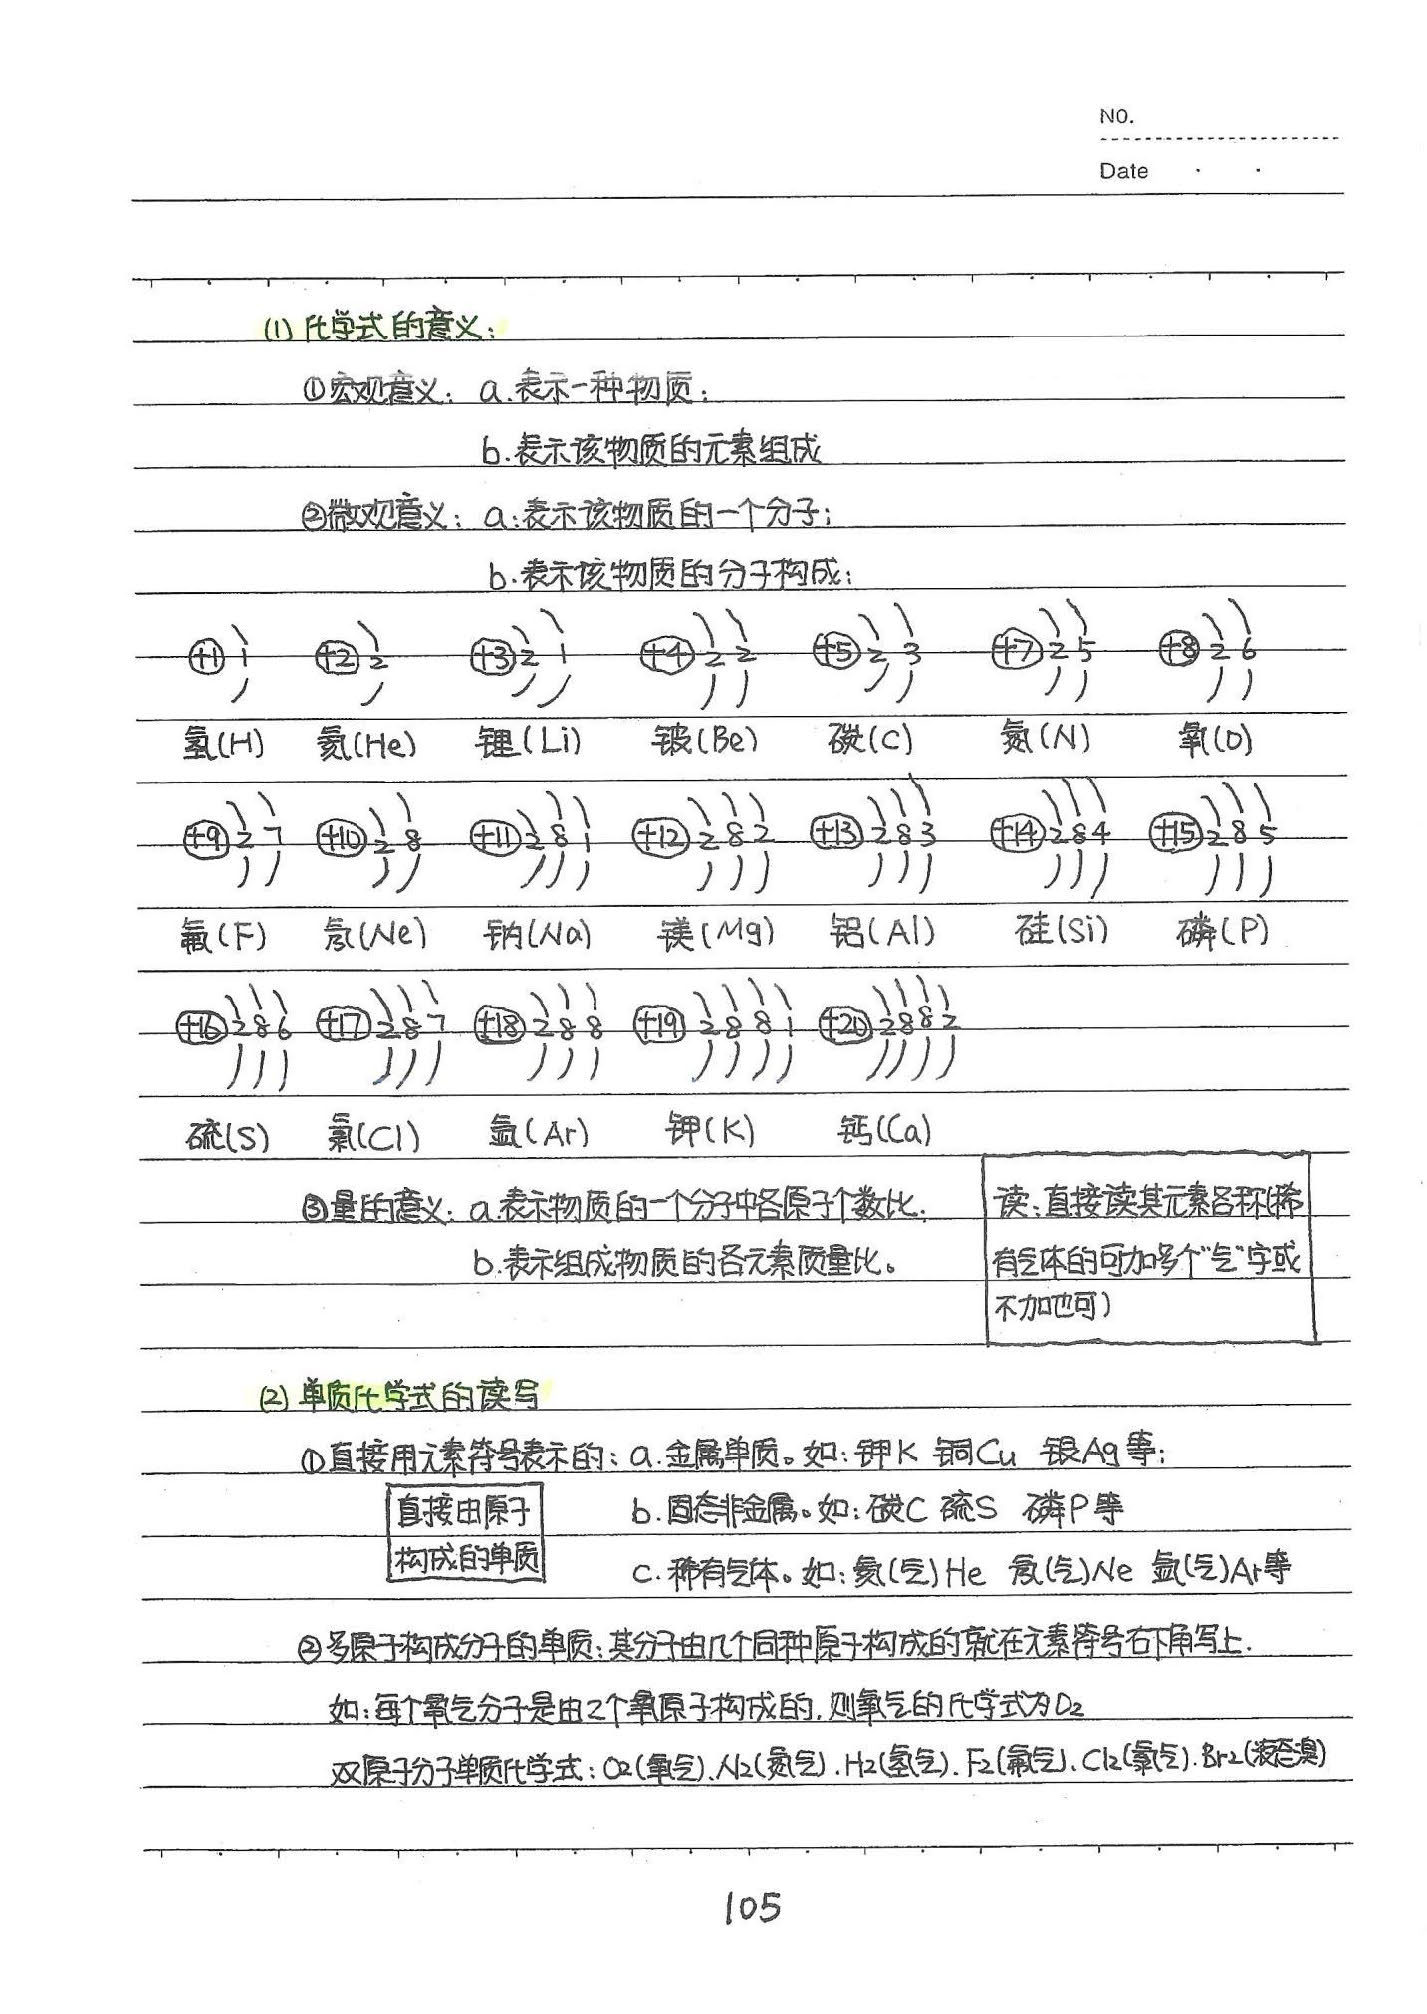 NO.
Date
(1) 化学式的意义:
①宏观意义: a.表示一种物质;
b.表示该物质的元素组成
②微观意义: a.表示该物质的一个分子;
b.表示该物质的分子构成;
+1 1 +2 2 +3 2 1 +4 2 2 +5 2 3 +7 2 5 +8 2 6
氢(H) 氦(He) 锂(Li) 铍(Be) 碳(C) 氮(N) 氧(O)
+9 2 7 +10 2 8 +11 2 8 1 +12 2 8 2 +13 2 8 3 +14 2 8 4 +15 2 8 5
氟(F) 氖(Ne) 钠(Na) 镁(Mg) 铝(Al) 硅(Si) 磷(P)
+16 2 8 6 +17 2 8 7 +18 2 8 8 +19 2 8 8 1 +20 2 8 8 2
硫(S) 氯(Cl) 氩(Ar) 钾(K) 钙(Ca)
③量的意义: a.表示物质的一个分子中各原子个数比;
b.表示组成物质的各元素质量比。
读:直接读其元素名称(稀
有气体的可加多个“气”字或
不加也可)
(2) 单质化学式的读写
①直接用元素符号表示的: a.金属单质。如:钾K 铜Cu 银Ag等;
直接由原子
构成的单质
b.固态非金属。如:碳C 硫S 磷P等
c.稀有气体。如:氦(气)He 氖(气)Ne 氩(气)Ar等
②多原子构成分子的单质:其分子由几个同种原子构成的就在元素符号右下角写上.
如:每个氧气分子是由2个氧原子构成的,则氧气的化学式为O₂
双原子分子单质化学式:O₂(氧气)、N₂(氮气)、H₂(氢气)、F₂(氟气)、Cl₂(氯气)、Br₂(液态溴)
105